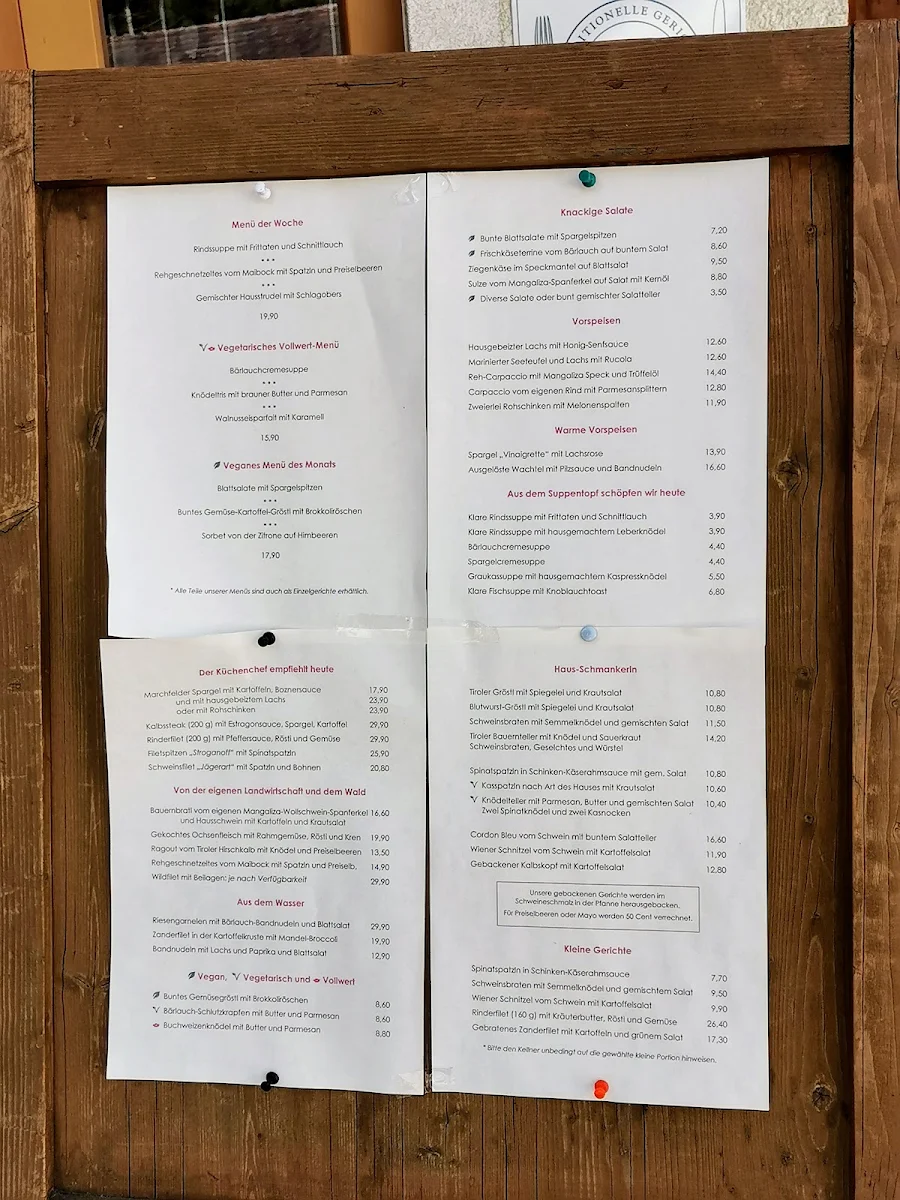 ITIONELLE GERI
Menü der Woche
Rindssuppe mit Frittaten und Schnittlauch
* * *
Rehgeschnetzeltes vom Maibock mit Spatzln und Preiselbeeren
* * *
Gemischter Hausstrudel mit Schlagobers
19,90
Vegetarisches Vollwert-Menü
Bärlauchcremesuppe
* * *
Knödeltris mit brauner Butter und Parmesan
* * *
Walnusseisparfait mit Karamell
15,90
Veganes Menü des Monats
Blattsalate mit Spargelspitzen
* * *
Buntes Gemüse-Kartoffel-Gröstl mit Brokkoliröschen
* * *
Sorbet von der Zitrone auf Himbeeren
17,90
* Alle Teile unserer Menüs sind auch als Einzelgerichte erhältlich.
Knackige Salate
Bunte Blattsalate mit Spargelspitzen 7,20
Frischkäseterrine vom Bärlauch auf buntem Salat 8,60
Ziegenkäse im Speckmantel auf Blattsalat 9,50
Sulze vom Mangaliza-Spanferkel auf Salat mit Kernöl 8,80
Diverse Salate oder bunt gemischter Salatteller 3,50
Vorspeisen
Hausgebeizter Lachs mit Honig-Senfsauce 12,60
Marinierter Seeteufel und Lachs mit Rucola 12,60
Reh-Carpaccio mit Mangaliza Speck und Trüffelöl 14,40
Carpaccio vom eigenen Rind mit Parmesansplittern 12,80
Zweierlei Rohschinken mit Melonenspalten 11,90
Warme Vorspeisen
Spargel „Vinaigrette“ mit Lachsrose 13,90
Ausgelöste Wachtel mit Pilzsauce und Bandnudeln 16,60
Aus dem Suppentopf schöpfen wir heute
Klare Rindssuppe mit Frittaten und Schnittlauch 3,90
Klare Rindssuppe mit hausgemachtem Leberknödel 3,90
Bärlauchcremesuppe 4,40
Spargelcremesuppe 4,40
Graukassuppe mit hausgemachtem Kaspressknödel 5,50
Klare Fischsuppe mit Knoblauchtoast 6,80
Der Küchenchef empfiehlt heute
Marchfelder Spargel mit Kartoffeln, Boznersauce 17,90
und mit hausgebeiztem Lachs 23,90
oder mit Rohschinken 23,90
Kalbssteak (200 g) mit Estragonsauce, Spargel, Kartoffel 29,90
Rinderfilet (200 g) mit Pfeffersauce, Rösti und Gemüse 29,90
Filetspitzen „Stroganoff“ mit Spinatspatzln 25,90
Schweinsfilet „Jägerart“ mit Spatzln und Bohnen 20,80
Von der eigenen Landwirtschaft und dem Wald
Bauernbratl vom eigenen Mangaliza-Wollschwein-Spanferkel 16,60
und Hausschwein mit Kartoffeln und Krautsalat
Gekochtes Ochsenfleisch mit Rahmgemüse, Rösti und Kren 19,90
Ragout vom Tiroler Hirschkalb mit Knödel und Preiselbeeren 13,50
Rehgeschnetzeltes vom Maibock mit Spatzln und Preiselb. 14,90
Wildfilet mit Beilagen: je nach Verfügbarkeit 29,90
Aus dem Wasser
Riesengarnelen mit Bärlauch-Bandnudeln und Blattsalat 29,90
Zanderfilet in der Kartoffelkruste mit Mandel-Broccoli 19,90
Bandnudeln mit Lachs und Paprika und Blattsalat 12,90
Vegan, Vegetarisch und Vollwert
Buntes Gemüsegröstl mit Brokkoliröschen 8,60
Bärlauch-Schlutzkrapfen mit Butter und Parmesan 8,60
Buchweizenknödel mit Butter und Parmesan 8,80
Haus-Schmankerln
Tiroler Gröstl mit Spiegelei und Krautsalat 10,80
Blutwurst-Gröstl mit Spiegelei und Krautsalat 10,80
Schweinsbraten mit Semmelknödel und gemischten Salat 11,50
Tiroler Bauernteller mit Knödel und Sauerkraut 14,20
Schweinsbraten, Geselchtes und Würstel
Spinatspatzln in Schinken-Käserahmsauce mit gem. Salat 10,80
Kasspatzln nach Art des Hauses mit Krautsalat 10,60
Knödelteller mit Parmesan, Butter und gemischten Salat 10,40
Zwei Spinatknödel und zwei Kasnocken
Cordon Bleu vom Schwein mit buntem Salatteller 16,60
Wiener Schnitzel vom Schwein mit Kartoffelsalat 11,90
Gebackener Kalbskopf mit Kartoffelsalat 12,80
Unsere gebackenen Gerichte werden im
Schweineschmalz in der Pfanne herausgebacken.
Für Preiselbeeren oder Mayo werden 50 Cent verrechnet.
Kleine Gerichte
Spinatspatzln in Schinken-Käserahmsauce 7,70
Schweinsbraten mit Semmelknödel und gemischtem Salat 9,50
Wiener Schnitzel vom Schwein mit Kartoffelsalat 9,90
Rinderfilet (160 g) mit Kräuterbutter, Rösti und Gemüse 26,40
Gebratenes Zanderfilet mit Kartoffeln und grünem Salat 17,30
* Bitte den Kellner unbedingt auf die gewählte kleine Portion hinweisen.